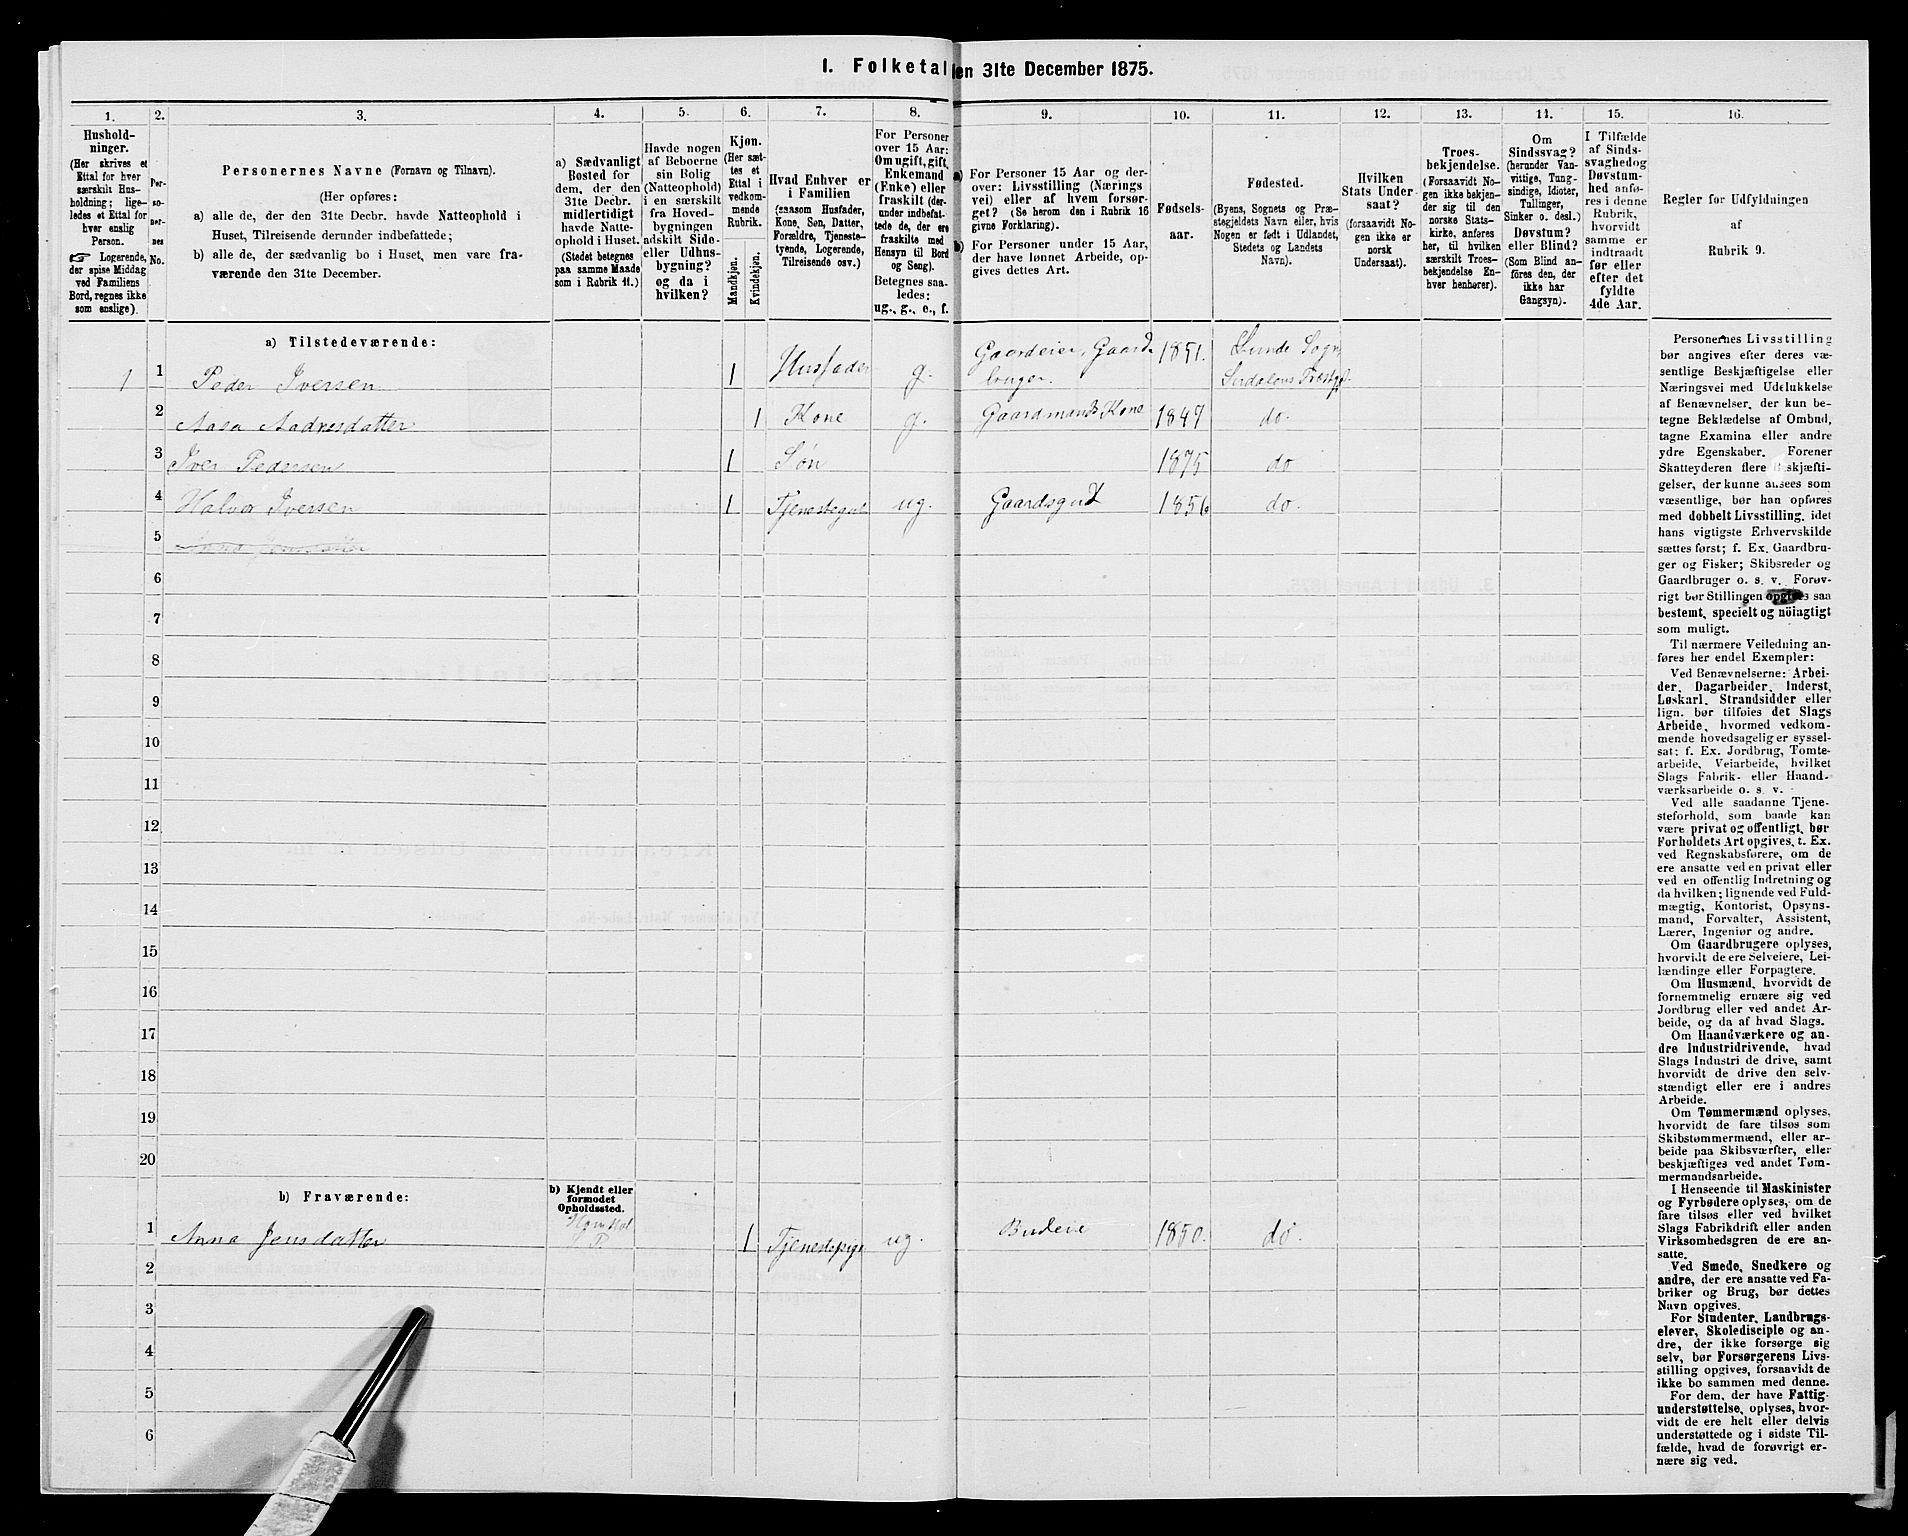 1. Folketal den 31te December 1875.
1.
Hushold-
ninger.
(Her skrives et
Ettal for hver
særskilt Hus-
holdning; lige-
ledes et Ettal for
hver enslig
Person.
☞ Logerende,
der spise Middag
ved Familiens
Bord, regnes ikke
som enslige).
2.
Per-
so-
ner-
nes
No.
3.
Personernes Navne (Fornavn og Tilnavn).
(Her opføres:
a) alle de, der den 31te Decbr. havde Natteophold i
Huset, Tilreisende derunder indbefattede;
b) alle de, der sædvanlig bo i Huset, men vare fra-
værende den 31te December.
4.
a) Sædvanligt
Bosted for
dem, der den
31te Decbr.
midlertidigt
havde Natte-
ophold i Huset.
(Stedet betegnes
paa samme Maade
som i Rubrik 11.)
5.
Havde nogen
af Beboerne
sin Bolig
(Natteophold)
i en særskilt
fra Hoved-
bygningen
adskilt Side-
eller Udhus-
bygning?
og da i
hvilken?
6.
Kjøn.
(Her sæt-
tes et
Ettal i
vedkom-
mende
Rubrik.
Mandkjøn.
Kvindekjøn.
7.
Hvad Enhver er
i Familien
(saasom Husfader,
Kone, Søn, Datter,
Forældre, Tjeneste-
tyende, Logerende,
Tilreisende osv.)
8.
For Personer
over 15 Aar:
Om ugift, gift,
Enkemand
(Enke) eller
fraskilt (der-
under indbefat-
tede de, der ere
fraskilte med
Hensyn til Bord
og Seng).
Betegnes saa-
ledes:
ug., g., e., f.
9.
a) For Personer 15 Aar og der-
over: Livsstilling (Nærings
vei) eller af hvem forsør-
get? (Se herom den i Rubrik 16
givne Forklaring).
b) For Personer under 15 Aar,
der have lønnet Arbeide, op-
gives dettes Art.
10.
Fødsels-
aar.
11.
Fødested.
(Byens, Sognets og Præ-
stegjeldets Navn eller, hvis
Nogen er født i Udlandet,
Stedets og Landets
Navn).
12.
Hvilken
Stats Under-
saat?
(forsaavidt No-
gen ikke er
norsk
Undersaat).
13.
Troes-
bekjendelse.
(Forsaavidt No-
gen ikke bekjen-
der sig til den
norske Stats-
kirke, anføres
her, til hvilken
særskilt Troes-
bekjendelse En-
hver henhører).
14.
Om
Sindssvag?
(herunder Van-
vittige, Tung-
sindige, Idioter,
Tullinger,
Sinker o. desl.)
Døvstum?
eller Blind?
(Som Blind an-
føres den, der
ikke har
Gangsyn).
15.
I Tilfælde
af Sinds-
svaghed og
Døvstum-
hed anfø-
res i denne
Rubrik,
hvorvidt
samme er
indtraadt
før eller
efter det
fyldte
4de Aar.
16.
Regler for Udfyldningen
af
Rubrik 9.
a) Tilstedeværende:
1 1 Peder Iversen 1 Husfader g. Gaardeier, Gaard-
bruger. 1851. Lunde Sogn,
Sirdalens Præstgj.
2 Aasa Aadnesdatter 1 Kone g. Gaardmands Kone 1847 do.
3 Iver Pedersen 1 Søn 1875 do
4 Halvor Iversen 1 Tjenestegut ug. Gaardsgut 1856 do.
5 Anna Jensdatter
6
7
8
9
10
11
12
13
14
15
16
17
18
19
20
b) Fraværende:
b) Kjendt eller
formodet
Opholdssted.
1 Anna Jensdatter 1 Tjenestepige ug. Budeie 1850. do.
2
3
4
5
6
Personernes Livsstilling
bør angives efter deres væ-
sentlige Beskjæftigelse eller
Næringsvei med Udelukkelse
af Benævnelser, der kun be-
tegne Beklædelse af Ombud,
tagne Examina eller andre
ydre Egenskaber. Forener
Skatteyderen flere Beskjæfti-
gelser, der kunne ansees som
væsentlige, bør han opføres
med dobbelt Livsstilling, idet
hans vigtigste Erhvervskilde
sættes først; f. Ex. Gaardbru-
ger og Fisker; Skibsreder og
Gaardbruger o. s. v. Forøv-
rigt bør Stillingen opgives saa
bestemt, specielt og nöiagtigt
som muligt.
Til nærmere Veiledning an-
føres her endel Exempler:
Ved Benævnelserne: Arbei-
der, Dagarbeider, Inderst,
Løskarl, Strandsidder eller
lign. bør tilføies det Slags
Arbeide, hvormed vedkom-
mende hovedsagelig er syssel-
sat; f. Ex. Jordbrug, Tomte-
arbeide, Veiarbeide, hvilket
Slags Fabrik- eller Haand-
værksarbeide o. s. v.
Ved alle saadanne Tjene-
steforhold, som baade kan
være privat og offentligt, bør
Forholdets Art opgives, t. Ex.
ved Regnskabsførere, om de
ere ansatte ved en privat eller
ved en offentlig Indretning og
da hvilken; lignende ved Fuld-
mægtig, Kontorist, Opsyns-
mand, Forvalter, Assistent,
Lærer, Ingeniør og andre.
Om Gaardbrugere oplyses,
hvorvidt de ere Selveiere, Lei-
lændinge eller Forpagtere.
Om Husmænd, hvorvidt de
fornemmelig ernære sig ved
Jordbrug eller ved andet Ar-
beide, og da af hvad Slags.
Om Haandværkere og an-
dre Industridrivende, hvad
Slags Industri de drive, samt
hvorvidt de drive den selv-
stændigt eller ere i andres
Arbeide.
Om Tømmermænd oplyses,
hvorvidt de fare tilsøs som
Skibstømmermænd, eller ar-
beide paa Skibsværfter, eller
beskjæftiges ved andet Tøm-
mermandsarbeide.
I Henseende til Maskinister
og Fyrbødere oplyses, om de
fare tilsøs eller ved hvilket
Slags Fabrikdrift eller anden
Virksomhedsgren de ere an-
satte.
Ved Smede, Snedkere og
andre, der ere ansatte ved Fa-
briker og Brug, bør dettes
Navn opgives.
For Studenter, Landbrugs-
elever, Skoledisciple og an-
dre, der ikke forsørge sig
selv, bør Forsørgerens Livs-
stilling opgives, forsaavidt de
ikke bo sammen med denne.
For dem, der have Fattig-
understøttelse, oplyses, hvor-
vidt de ere helt eller delvis
understøttede og i sidste Til-
fælde, hvad de forøvrigt er-
nære sig ved.